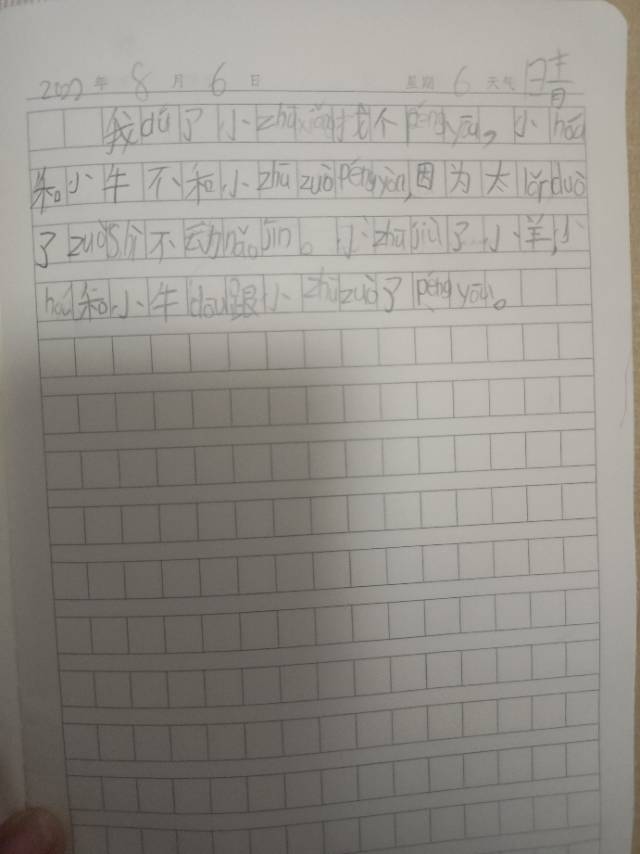 年 8 月 6 日 星期 6 天气 晴
我dú了小zhū xiǎng找个péng yǒu，小hóu
和小牛不和小zhū zuò péng yǒu，因为太lǎn duò
了zuò shì不动nǎo jīn。小zhū jiù了小羊，小
hóu和小牛dōu跟小zhū zuò了péng yǒu。